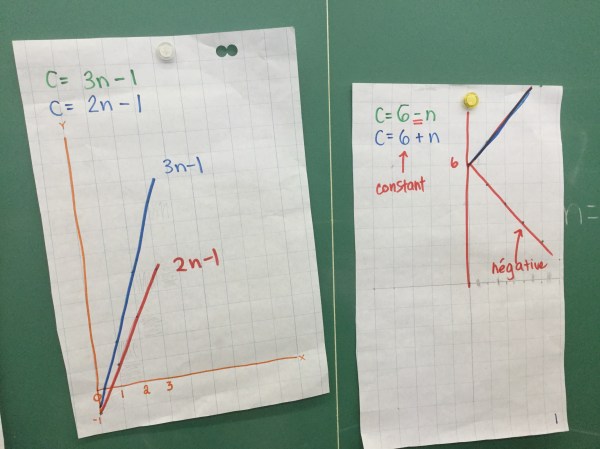 C= 3n-1
C= 2n-1
Y
3n-1
2n-1
x
0 1 2 3
-1
C=6-n
C=6+n
constant
6
négative
1
n=